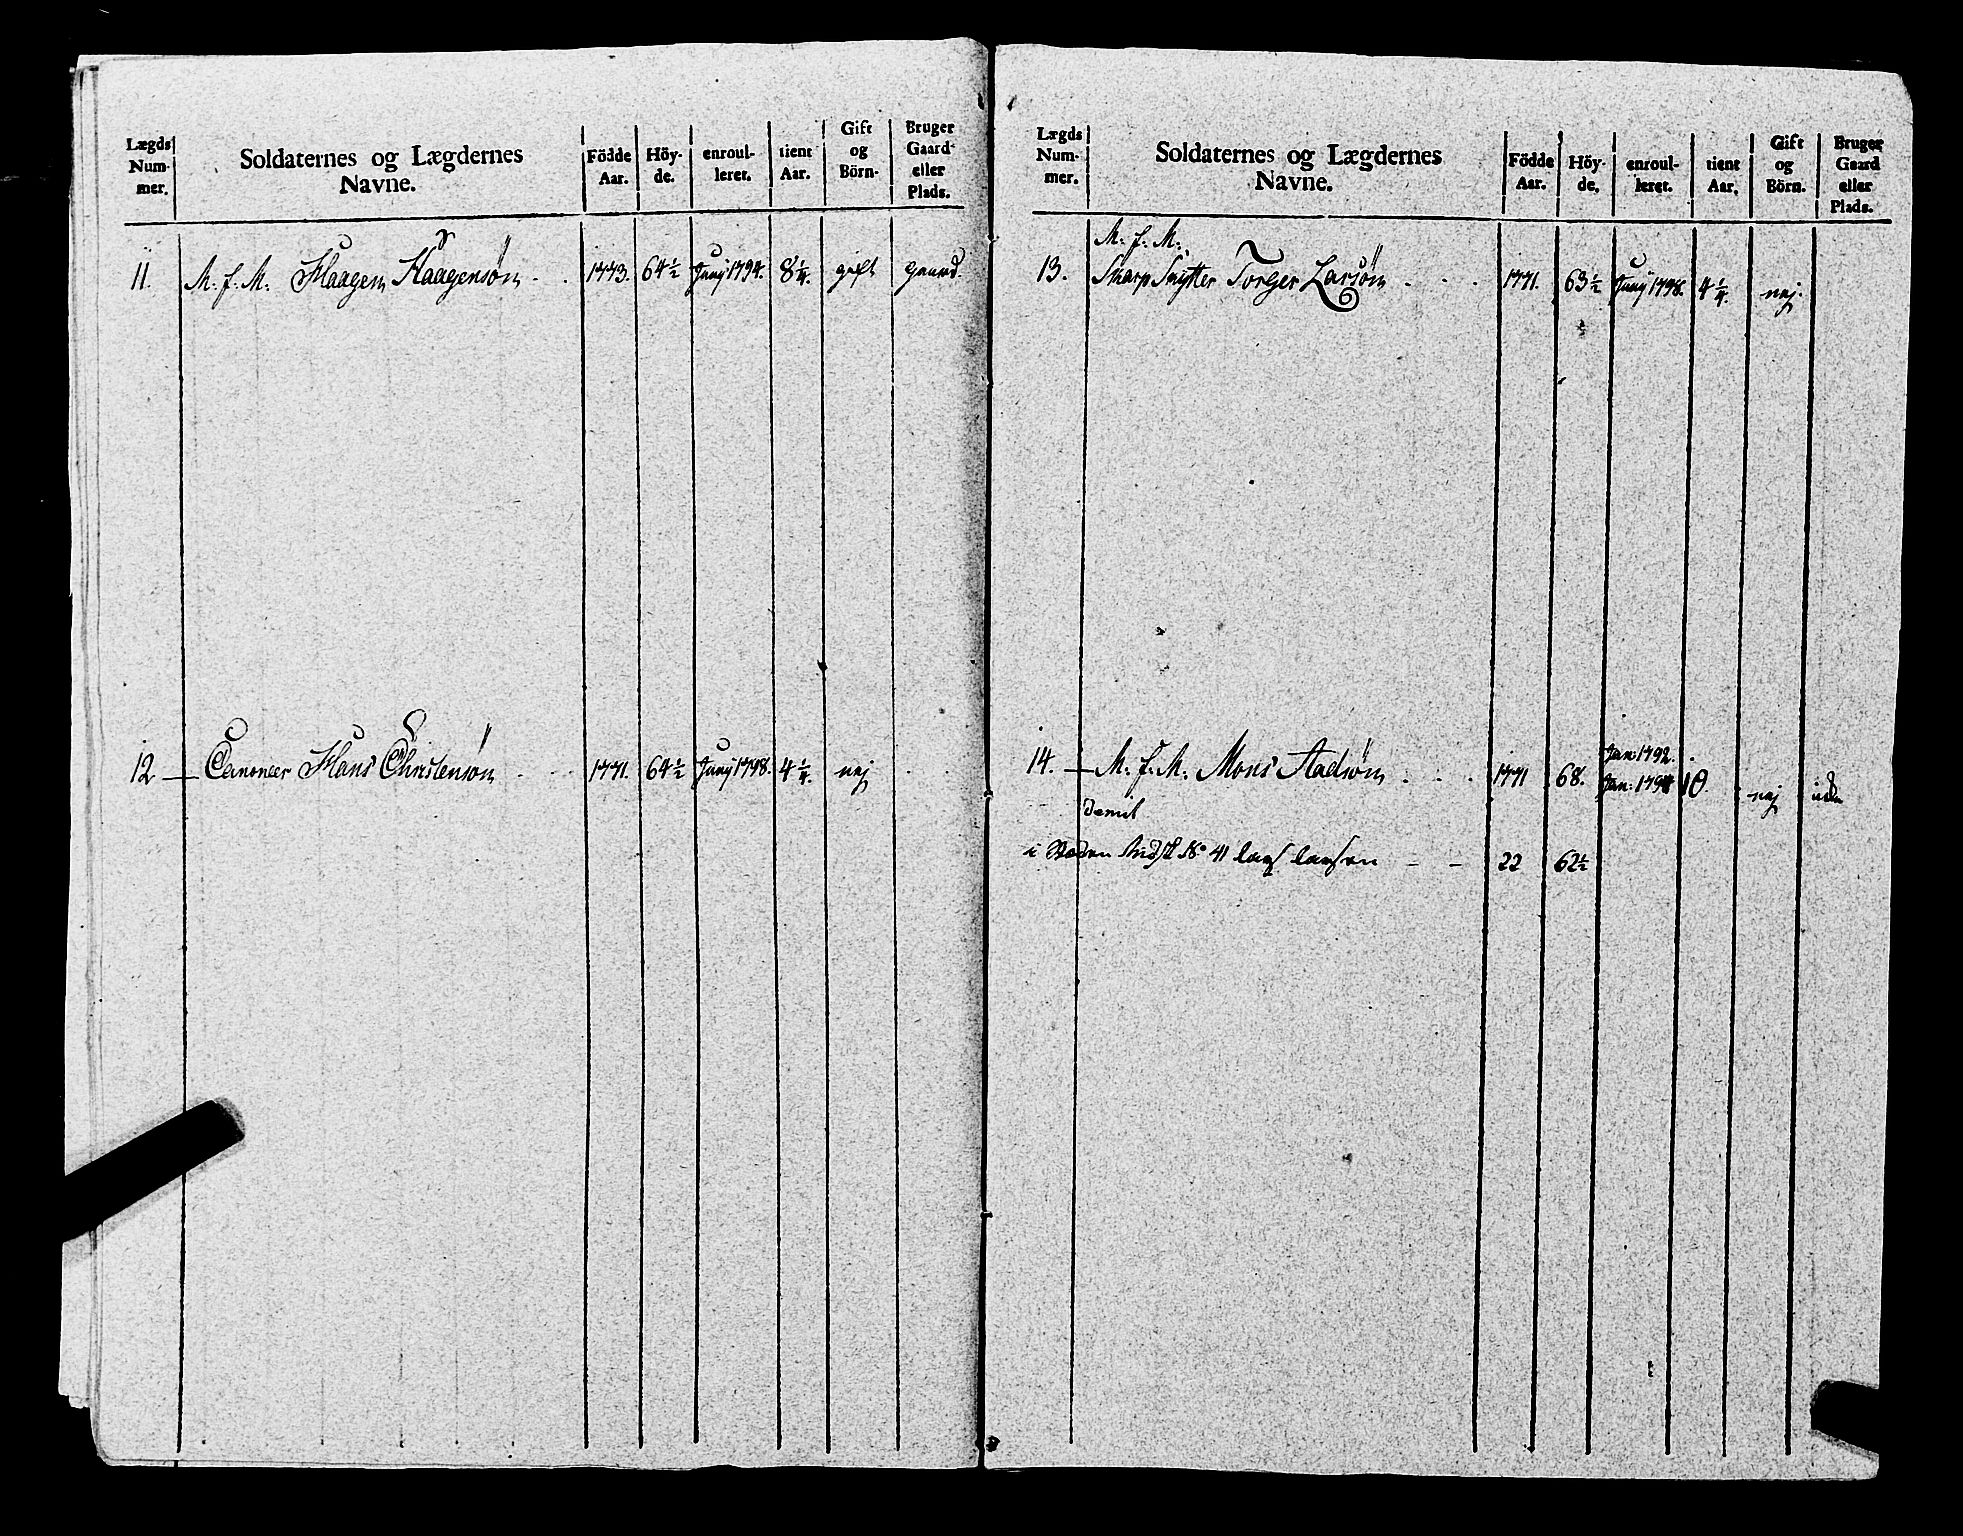 Lægds Num- mer. | Soldaternes og Lægdernes Navne. | Födde Aar. | Höy- de. | enroul- leret. | tient Aar. | Gift og Börn- | Bruger Gaard- eller Plads.
11. M. f. M. Haagen Haagensøn . . 1773. 64 1/2 Junj 1794. 8 1/4. gift gaard.
12 — Canoneer Hans Christensøn . . . 1771. 64 1/2 Junj 1798. 4 1/4. nej . .
Lægds Num- mer. | Soldaternes og Lægdernes Navne. | Födde Aar. | Höy- de. | enroul- leret. | tient Aar. | Gift og Börn. | Bruger Gaard eller Plads.
M. f. M.
13. Skarp Skytter Torger Larsøn . . . 1771. 63 1/2 Junj 1798. 4 1/4. nej.
Jan: 1792.
14. — M. f. M. Mons Aadsøn . . . 1771 68. Jan: 1794 10. nej
Demit
i Steden No 41 Lars Larsen - - 22 62 1/2